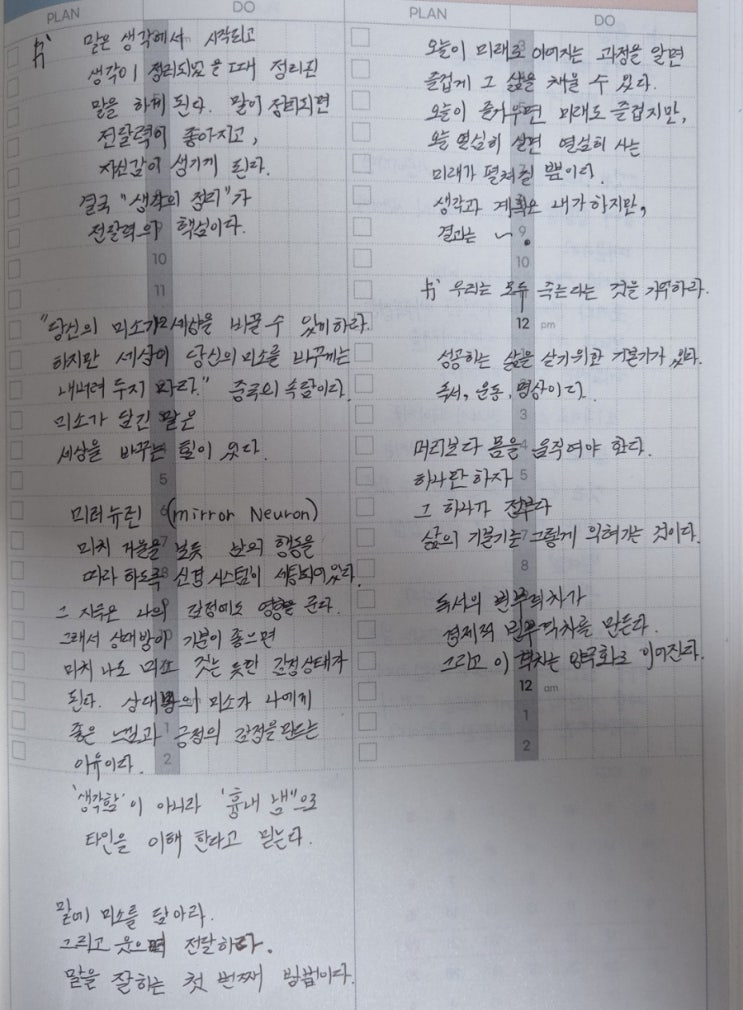 PLAN DO
말은 생각에서 시작되고
생각이 정리되었을 때 정리된
말을 하게 된다. 말이 정리되면
전달력이 좋아지고,
자신감이 생기게 된다.
결국 "생각의 정리"가
전달력의 핵심이다.
10
11
"당신의 미소가 세상을 바꿀 수 있게하라.
하지만 세상이 당신의 미소를 바꾸게는
내버려 두지 마라." 중국의 속담이다.
미소가 담긴 말은
세상을 바꾸는 힘이 있다.
5
미러뉴런 (mirror Neuron)
마치 거울을 보듯 남의 행동을
따라 하도록 신경 시스템이 세팅되어있다.
그 지득은 나의 감정에도 영향을 준다.
그래서 상대방이 기분이 좋으면
마치 나도 미소 짓는 듯한 감정상태가
된다. 상대방의 미소가 나에게
좋은 느낌과 긍정의 감정을 만드는
이유이다.
2
'생각함'이 아니라 '흉내 냄"으로
타인을 이해 한다고 믿는다.
말에 미소를 담아라.
그리고 웃으며 전달하라.
말을 잘하는 첫 번째 방법이다.
PLAN DO
오늘이 미래로 이어지는 과정을 알면
즐겁게 그 삶을 채울 수 있다.
오늘이 즐거우면 미래도 즐겁지만,
오늘 열심히 살면 열심히 사는
미래가 펼쳐질 뿐이다.
생각과 계획은 내가 하지만,
결과는 ~.
9
10
우리는 모두 죽는다는 것을 기억하라.
12 pm
성공하는 삶을 살기위한 기본기가 있다.
독서, 운동, 명상이다.
3
머리보다 몸을 움직여야 한다.
하나만 하자
5
그 하나가 전부다
삶의 기본기는 그렇게 익혀가는 것이다.
8
독서의 빈부격차가
경제적 빈부격차를 만든다.
그리고 이 격차는 양극화로 이어진다.
12 am
1
2